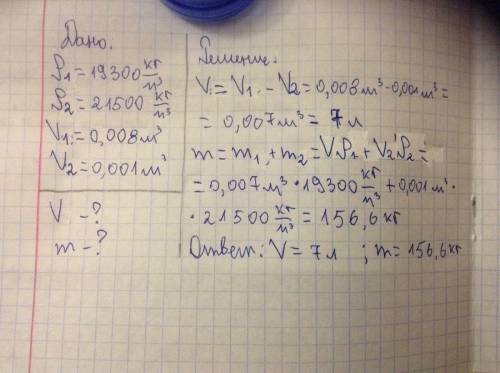 Дано:
ρ₁ = 19300 кг/м³
ρ₂ = 21500 кг/м³
V₁ = 0,008 м³
V₂ = 0,001 м³
V - ?
m - ?
Решение:
V = V₁ - V₂ = 0,008 м³ - 0,001 м³ =
= 0,007 м³ = 7 л
m = m₁ + m₂ = Vρ₁ + V₂ρ₂ =
= 0,007 м³ · 19300 кг/м³ + 0,001 м³ ·
· 21500 кг/м³ = 156,6 кг
Ответ: V = 7 л ; m = 156,6 кг